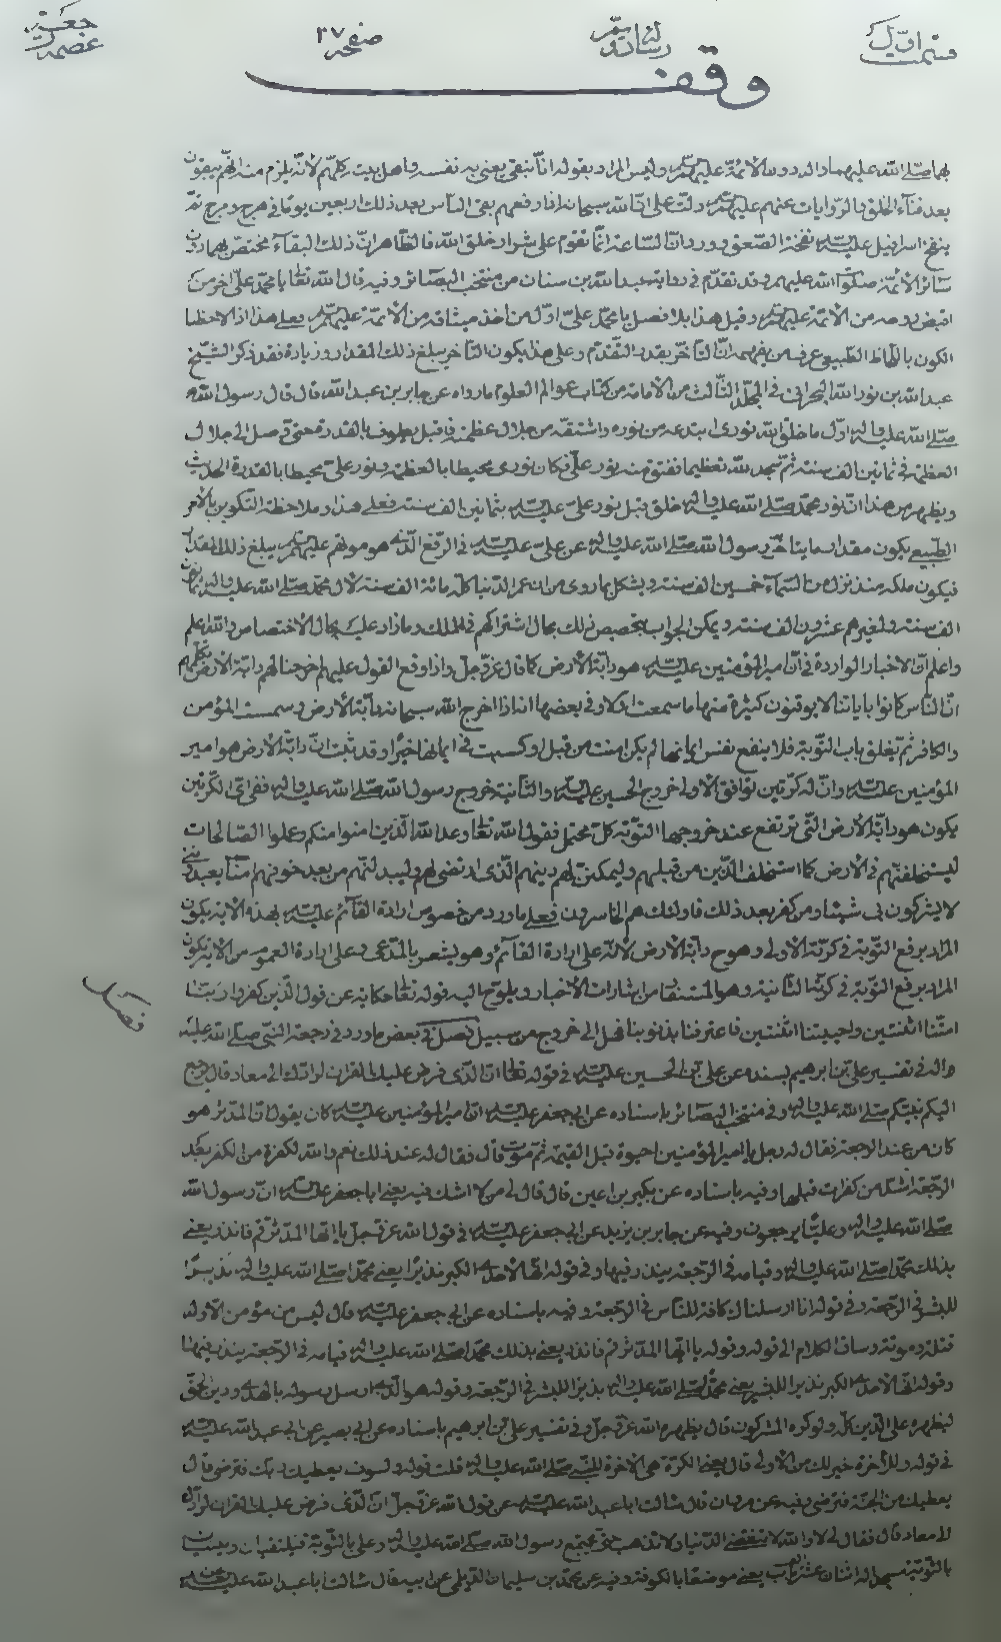 قسمت اول
رسالة
صفحه ٣٧
جعفر عصمة
وقف
بهما صلى الله عليهما والهما دون الائمة عليهم السلم وليس المراد بقوله انا نبقى يعني به نفسه واهل بيته كلهم لانه يلزم منه انهم يبقون
بعد فناء الخلق والروايات عنهم عليهم السلم دلت على ان الله سبحانه اذا رفعهم بقى الناس بعد ذلك اربعين يوما في هرج ومرج ثم
ينفخ اسرافيل عليه السلم نفخة الصعق وورد ان الساعة انما تقوم على شرار خلق الله فالظاهر ان ذلك البقاء مختص بهما دون
سائر الائمة صلوات الله عليهم وقد تقدم في رواية عبد الله بن سنان من منتخب البصائر وفيه قال الله تعالى يا محمد علي اخر من
اقبض روحه من الائمة عليهم السلم وقبل هذا بلا فصل يا محمد علي اول من اخذ ميثاقه من الائمة عليهم السلم فعلى هذا اذا لاحظنا
الكون بالحاظ الطبيعي عرف من يفهم ان التاخر بقدر التقدم وعلى هذا يكون التاخر يبلغ ذلك المقدار وزيادة فقد ذكر الشيخ
عبد الله بن نور الله البحراني في المجلد الثالث من الامامة من كتاب عوالم العلوم ما رواه عن جابر بن عبد الله قال قال رسول الله
صلى الله عليه واله اول ما خلق الله نوري ابتدعه من نوره واشتقه من جلال عظمته فاقبل يطوف بالقدرة حتى وصل الى جلال
العظمة في ثمانين الف سنة ثم سجد لله تعظيما ففتق منه نور علي فكان نوري محيطا بالعظمة ونور علي محيطا بالقدرة الحديث
ويظهر من هذا ان نور محمد صلى الله عليه واله خلق قبل نور علي عليه السلم بثمانين الف سنة فعلى هذا وملاحظة التكوين بالامر
الطبيعي يكون مقدار ما يتاخر رسول الله صلى الله عليه واله عن علي عليه السلم في الرفع الذي هو موتهم عليهم السلم يبلغ ذلك المقدار
فيكون ملكه منذ نزل من السماء خمسين الف سنة ويشكل بما روي من ان عمر الدنيا كله مائة الف سنة لال محمد صلى الله عليه واله ثمانون
الف سنة ولغيرهم عشرون الف سنة ويمكن الجواب بتخصيص ذلك بحال اشتراكهم في الملك وما زاد عليه بحال الاختصاص والله اعلم
واعلم ان الاخبار الواردة في ان امير المؤمنين عليه السلم هو دابة الارض كما قال عز وجل واذا وقع القول عليهم اخرجنا لهم دابة الارض تكلمهم
ان الناس كانوا باياتنا لا يوقنون كثيرة منها ما سمعت اولا وفي بعضها انه اذا اخرج الله سبحانه دابة الارض وسمت المؤمن
والكافر ثم تغلق باب التوبة فلا ينفع نفس ايمانها لم يكن امنت من قبل او كسبت في ايمانها خيرا وقد ثبت ان دابة الارض هو امير
المؤمنين عليه السلم وان له كرتين توافق الاولى خروج الحسين عليه السلم والثانية خروج رسول الله صلى الله عليه واله ففي اي الكرتين
يكون هو دابة الارض التي ترتفع عند خروجها التوبة كل محتمل فقول الله تعالى وعد الله الذين امنوا منكم وعملوا الصالحات
ليستخلفنهم في الارض كما استخلف الذين من قبلهم وليمكنن لهم دينهم الذي ارتضى لهم وليبدلنهم من بعد خوفهم امنا يعبدونني
لا يشركون بي شيئا ومن كفر بعد ذلك فاولئك هم الخاسرون فعلى ما ورد من خصوص ارادة القائم عليه السلم بهذه الاية يكون
المراد برفع التوبة في كرته الاولى وهو ح دابة الارض لانه على ارادة القائم وهو يشعر بالمدعى وعلى ارادة العموم من الاية يكون
المراد برفع التوبة في كرته الثانية وهو المستفاد من اشارات الاخبار ويلوح اليه قوله تعالى حكاية عن قول الذين كفروا ربنا
امتنا اثنتين واحييتنا اثنتين فاعترفنا بذنوبنا فهل الى خروج من سبيل فصل في بعض ما ورد في رجعة النبي صلى الله عليه
فصل
واله في تفسير علي بن ابرهيم بسنده عن علي بن الحسين عليه السلم في قوله تعالى ان الذي فرض عليك القران لرادك الى معاد قال يرجع
اليكم نبيكم صلى الله عليه واله وفي منتخب البصائر باسناده عن ابي جعفر عليه السلم ان امير المؤمنين عليه السلم كان يقول ان المدثر هو
كائن من عند الرجعة فقال له رجل يا امير المؤمنين احيوة قبل القيمة ثم موت قال فقال له عند ذلك نعم والله لكفرة من الكفر بعد
الرجعة اشد من كفرات قبلها وفيه باسناده عن بكير بن اعين قال قال لي من لا اشك فيه يعني ابا جعفر عليه السلم ان رسول الله
صلى الله عليه واله وعليا يرجعون وفيه عن جابر بن يزيد عن ابي جعفر عليه السلم في قول الله عز وجل يا ايها المدثر قم فانذر يعني
بذلك محمدا صلى الله عليه واله وقيامه في الرجعة ينذر فيها وفي قوله انها لاحدى الكبر نذيرا يعني محمدا صلى الله عليه واله نذيرا
للبشر في الرجعة وفي قوله انا ارسلناك كافة للناس في الرجعة وفيه باسناده عن ابي جعفر عليه السلم قال ليس من مؤمن الا وله
قتلة وموتة وساق الكلام الى قوله وقوله يا ايها المدثر قم فانذر يعني بذلك محمدا صلى الله عليه واله قيامه في الرجعة ينذر فيها
وقوله انها لاحدى الكبر نذيرا للبشر يعني محمدا صلى الله عليه واله نذيرا للبشر في الرجعة وقوله هو الذي ارسل رسوله بالهدى ودين الحق
ليظهره على الدين كله ولو كره المشركون قال يظهره الله عز وجل وفي تفسير علي بن ابرهيم باسناده عن ابي بصير عن ابي عبد الله عليه السلم
في قوله وللاخرة خير لك من الاولى قال يعني الكرة هي الاخرة للنبي صلى الله عليه واله قلت قوله ولسوف يعطيك ربك فترضى قال
يعطيك من الجنة فترضى وفيه عن مروان قال سالت ابا عبد الله عليه السلم عن قول الله عز وجل ان الذي فرض عليك القران لرادك
الى معاد قال فقال لي لا والله لا تنقضي الدنيا ولا تذهب حتى يجتمع رسول الله صلى الله عليه واله وعلي بالثوية فيلتقيان ويبنيان
بالثوية مسجدا له اثنا عشر الف باب يعني موضعا بالكوفة وفيه عن محمد بن سليمان الديلمي عن ابيه قال سالت ابا عبد الله عليه السلم عن